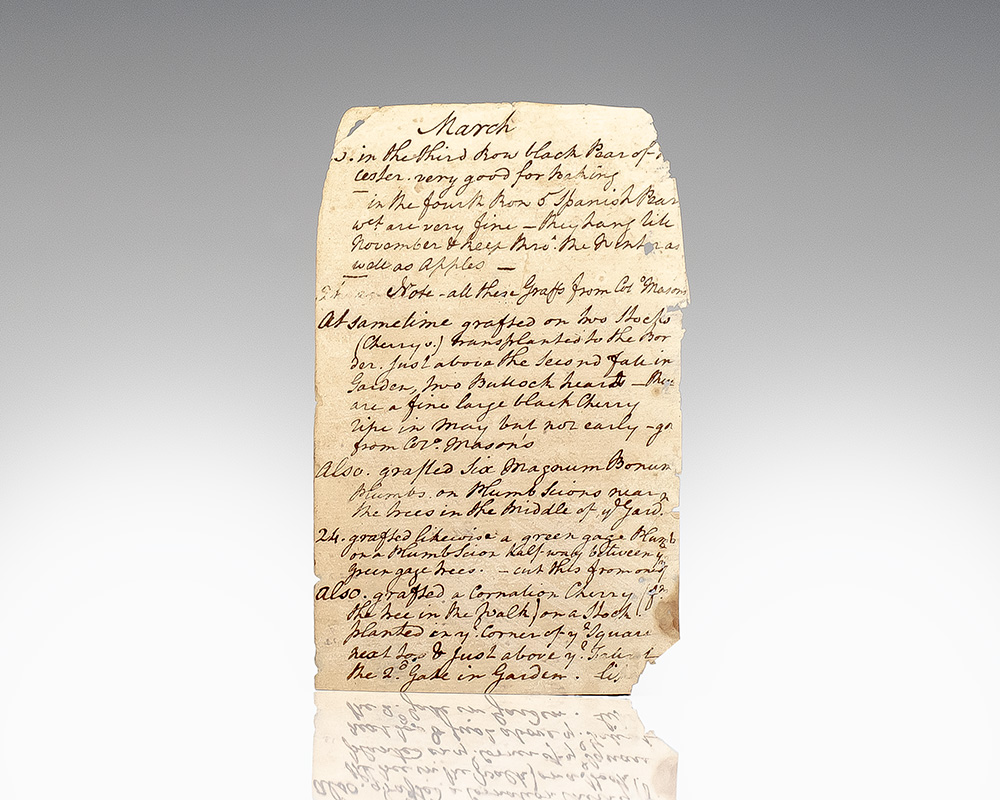 March
in the third Row black Pear of
cester. very good for baking
in the fourth Row 5 Spanish Pear
wch are very fine - they hang till
November & keep thro'. the Winter as
well as Apples —
Note - all these Grafts from Colo Mason's
At sametime grafted on two Stocks
(Cherry) transplanted to the Bor
der. Just above the Second fall in
Garden, two Bullock heart —
are a fine large black Cherry
ripe in May but not early - go
from Colo. Mason's
Also. grafted Six Magnum Bonum
Plumbs. on Plumb Scions near
the trees in the Middle of ye Gard.
24. grafted likewise a green gage Plumb
on a Plumb Scion half way between ye
green gage trees. - cut this from one of
also. grafted a Cornation Cherry (f
the tree in the Walk) on a Stock
planted in ye. Corner of ye Square
next to & Just above ye.
the 2d. Gate in Garden.